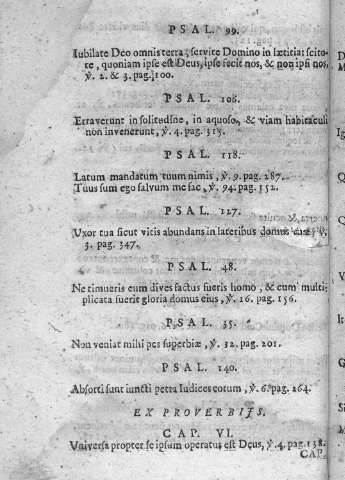 PSAL. 99.
Iubilate Deo omnis terra, servite Domino in lætitia: scito-
te, quoniam ipse est Deus, ipse fecit nos, & non ipsi nos,
℣. 2. & 3. pag. 100.
PSAL. 106.
Erraverunt in solitudine, in aquoso, & viam habitaculi
non invenerunt, ℣. 4. pag. 315.
PSAL. 118.
Latum mandatum tuum nimis, ℣. 9. pag. 287.
Tuus sum ego salvum me fac, ℣. 94. pag. 152.
PSAL. 127.
Vxor tua sicut vitis abundans in lateribus domus tuæ, ℣.
3. pag. 347.
PSAL. 48.
Ne timueris cum dives factus fueris homo, & cum multi-
plicata fuerit gloria domus eius, ℣. 16. pag. 156.
PSAL. 35.
Non veniat mihi pes superbiæ, ℣. 32. pag. 201.
PSAL. 140.
Absorti sunt iuncti petra Iudices eorum, ℣. 6. pag. 264.
EX PROVERBIIS.
CAP. VI.
Vniversa propter se ipsum operatus est Deus, ℣. 4. pag. 138.
CAP.